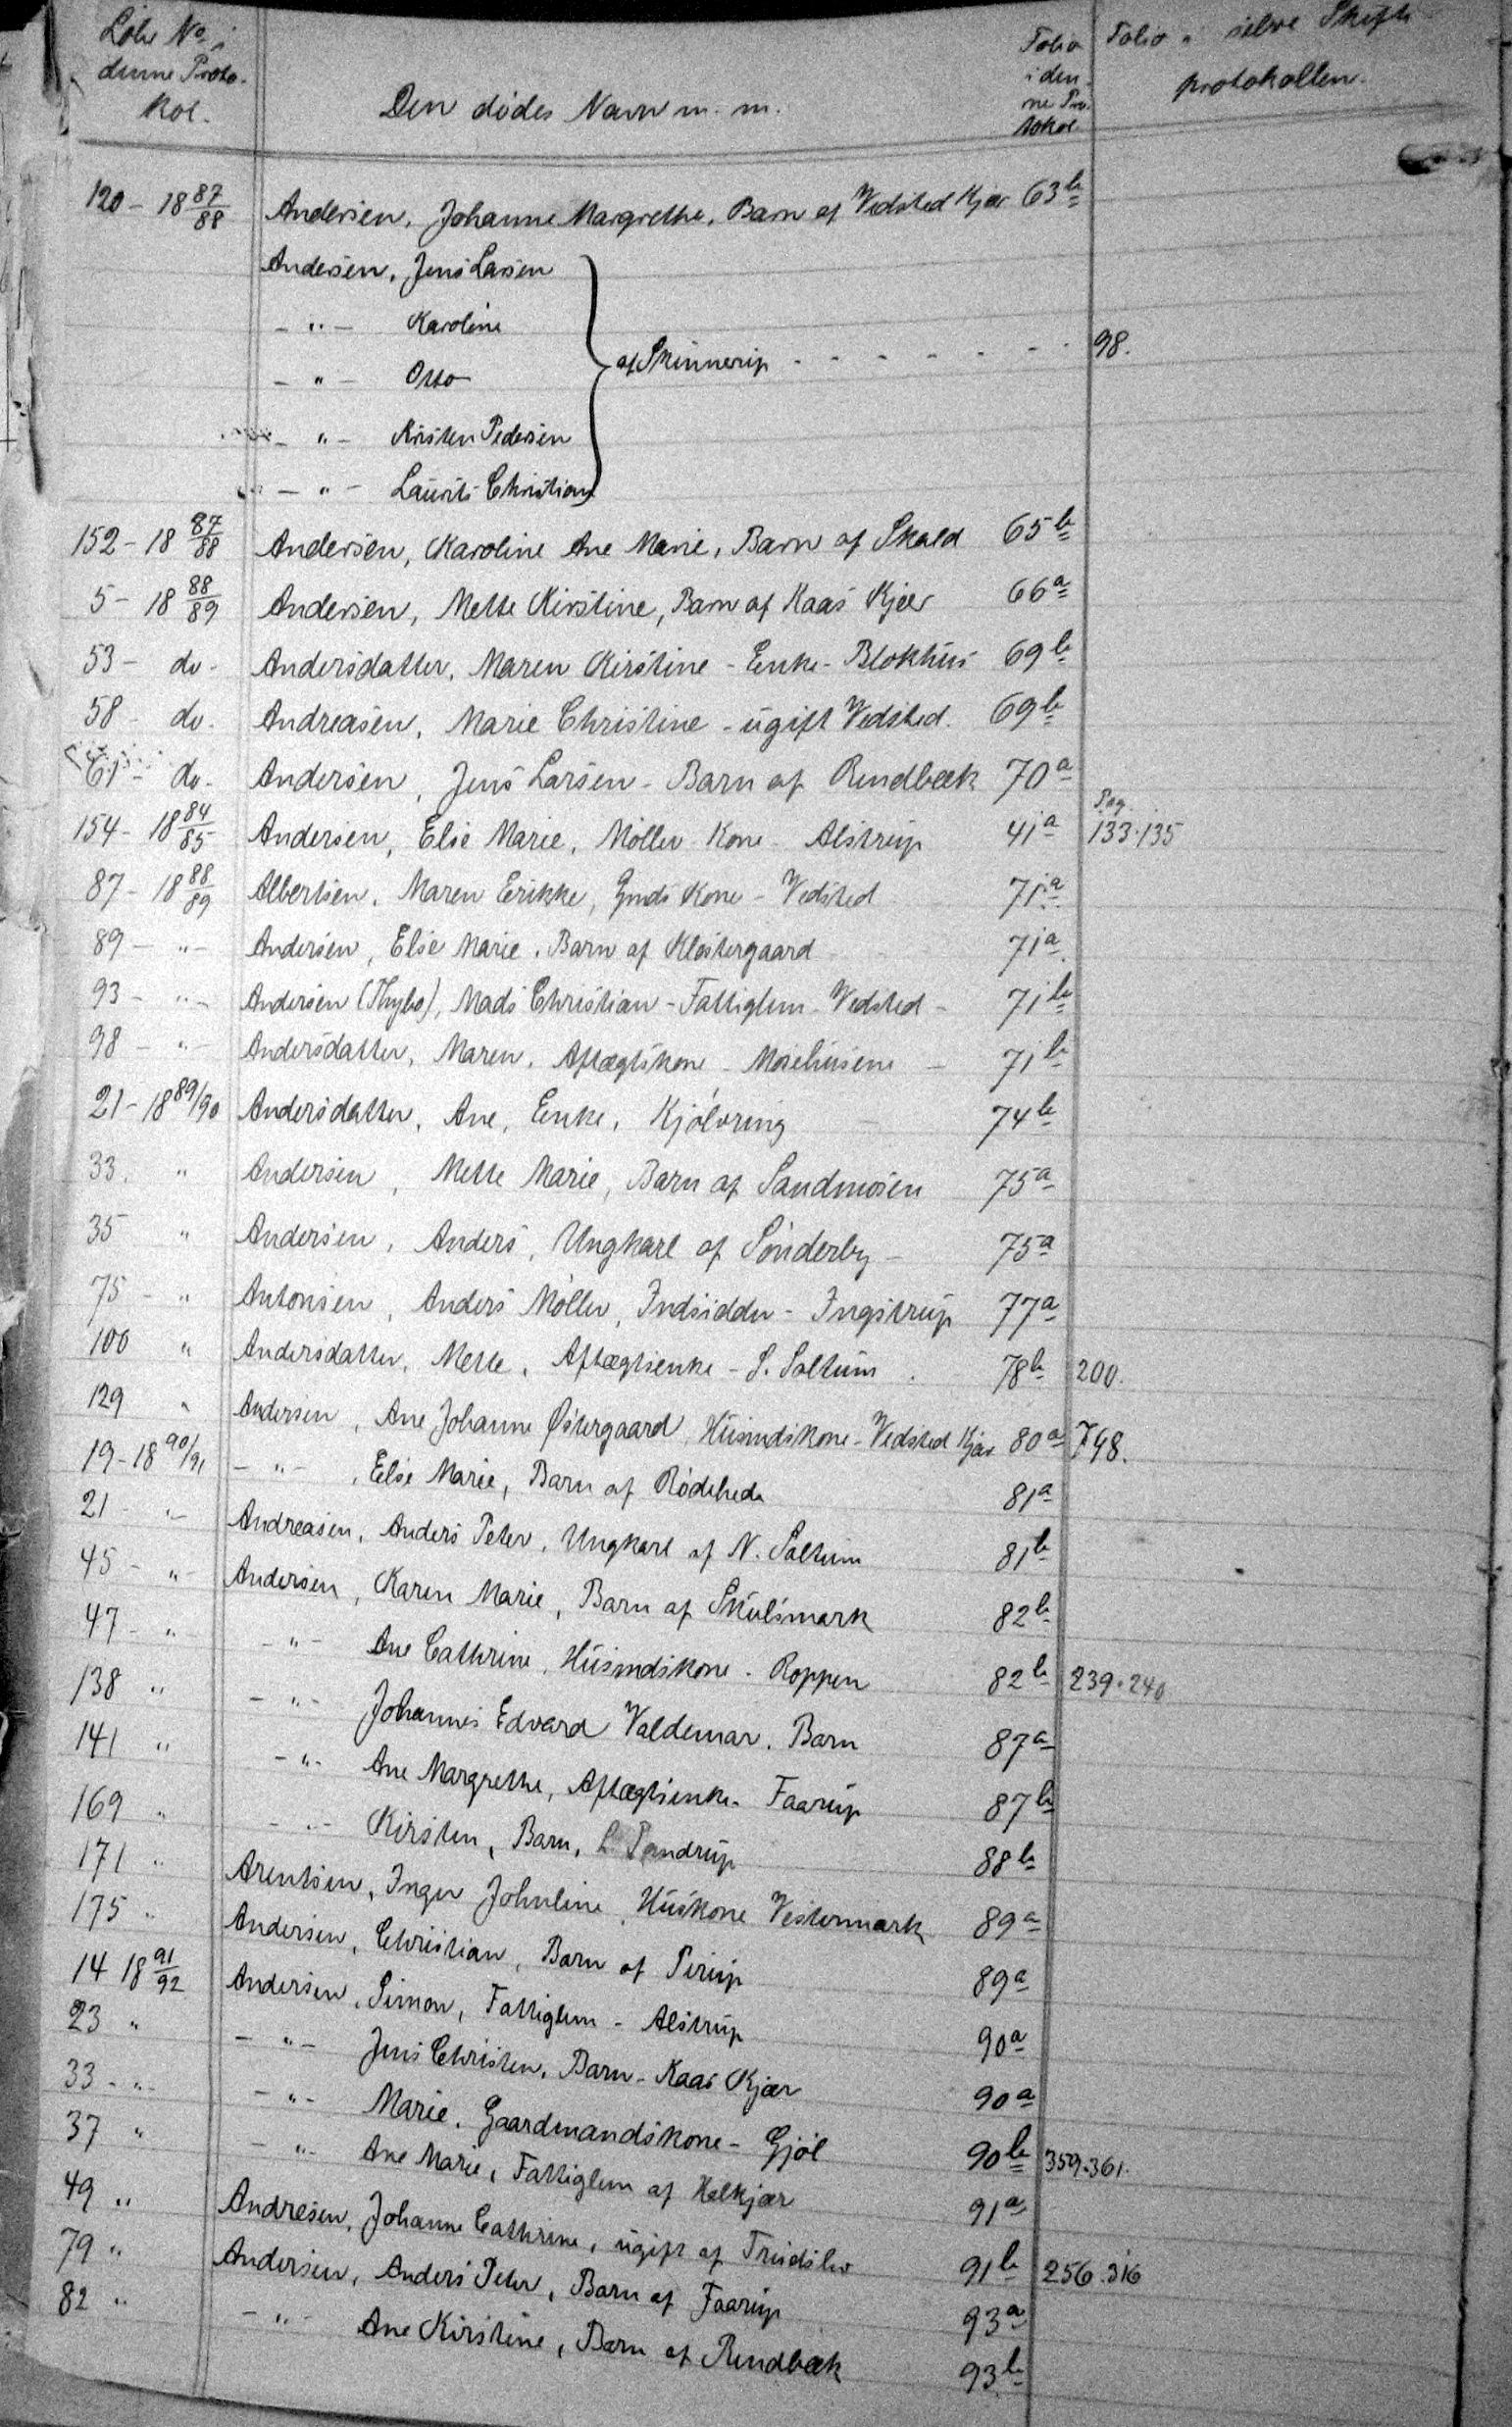 Løbe No i denne Protokol. | Den dødes Navn m. m. | Folio i denne Protokol | Folio i selve Skifteprotokollen.
120 - 18 87/88 Andersen, Johanne Margrethe, Barn af Vedsted Kjær 63b
Andersen, Jens Larsen
- " - Karoline
- " - Otto } af Skinnerup - - - - - - - 98.
- " - Kirsten Pedersen
- " - Laurits Christian
152 - 18 87/88 Andersen, Karoline Ane Marie, Barn af Skald 65b
5 - 18 88/89 Andersen, Mette Kirstine, Barn af Kaas Kjær 66a
53 - do - Andersdatter, Maren Kirstine - Enke - Blokhus 69b
58 - do - Andreasen, Marie Christine - ugift Vedsted. 69b
61 - do - Andersen, Jens Larsen - Barn af Rendbæk 70a
154 - 18 84/85 Andersen, Else Marie, Møller Kone - Alstrup 41a Pag. 133-135
87 - 18 88/89 Albertsen, Maren Erikke, Gmds Kone - Vedsted 71a
89 - " - Andersen, Else Marie, Barn af Klostergaard 71a
93 - " - Andersen (Thybo), Mads Christian - Fattiglem - Vedsted - 71b
98 - " - Andersdatter, Maren, Aftægtskone - Mosehusene - 71b
21 - 18 89/90 Andersdatter, Ane, Enke, Kjølvring 74b
33. " Andersen, Mette Marie, Barn af Sandmosen 75a
35 " Andersen, Anders, Ungkarl af Sønderby - 75a
75 - " Antonsen, Anders Møller, Indsidder - Ingstrup 77a
100 " Andersdatter, Mette, Aftægtsenke - S. Saltum . 78b 200.
129 " Andersen, Ane Johanne Østergaard, Husmdskone - Vedsted Kjær 80a 748.
19 - 18 90/91 - " - , Else Marie, Barn af Rødehede 81a
21 - " - Andreasen, Anders Peter, Ungkarl af N. Saltum 81b
45 - " - Andersen, Karen Marie, Barn af Skulsmark 82b
47 - " - - " - Ane Cathrine, Husmdskone - Roppen 82b 239-240
138 " - " - Johannes Edvard Valdemar, Barn 87a
141 " - " - Ane Margrethe, Aftægtsenke - Faarup 87b
169 " - " - Kirsten, Barn, L. Pandrup 88b
171 " Arentsen, Inger Johnline, Huskone Vestermark 89a
175 " Andersen, Christian, Barn af Pirup 89a
14 18 91/92 Andersen, Simon, Fattiglem - Alstrup 90a
23 " - " - Jens Christen, Barn - Kaas Kjær 90a
33 - " - - " - Marie, Gaardmandskone - Gjøl 90b 359-361.
37 " - " - Ane Marie, Fattiglem af Halkjær 91a
49 " Andresen, Johanne Cathrine, ugift af Trudslev 91b 256.316
79 " Andersen, Anders Peter, Barn af Faarup 93a
82 " - " - Ane Kirstine, Barn af Rendbæk 93b